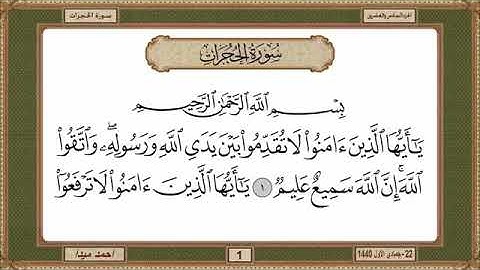 سورة الحجرات
الجزء السادس والعشرين
سُورَةُ الحُجُرَاتِ
بِسْمِ اللَّهِ الرَّحْمَٰنِ الرَّحِيمِ
يَٰٓأَيُّهَا الَّذِينَ ءَامَنُوا۟ لَا تُقَدِّمُوا۟ بَيْنَ يَدَيِ اللَّهِ وَرَسُولِهِۦ ۖ وَاتَّقُوا۟
اللَّهَ ۚ إِنَّ اللَّهَ سَمِيعٌ عَلِيمٌ ١ يَٰٓأَيُّهَا الَّذِينَ ءَامَنُوا۟ لَا تَرْفَعُوٓا۟
22 - جمادى الأول 1440
1